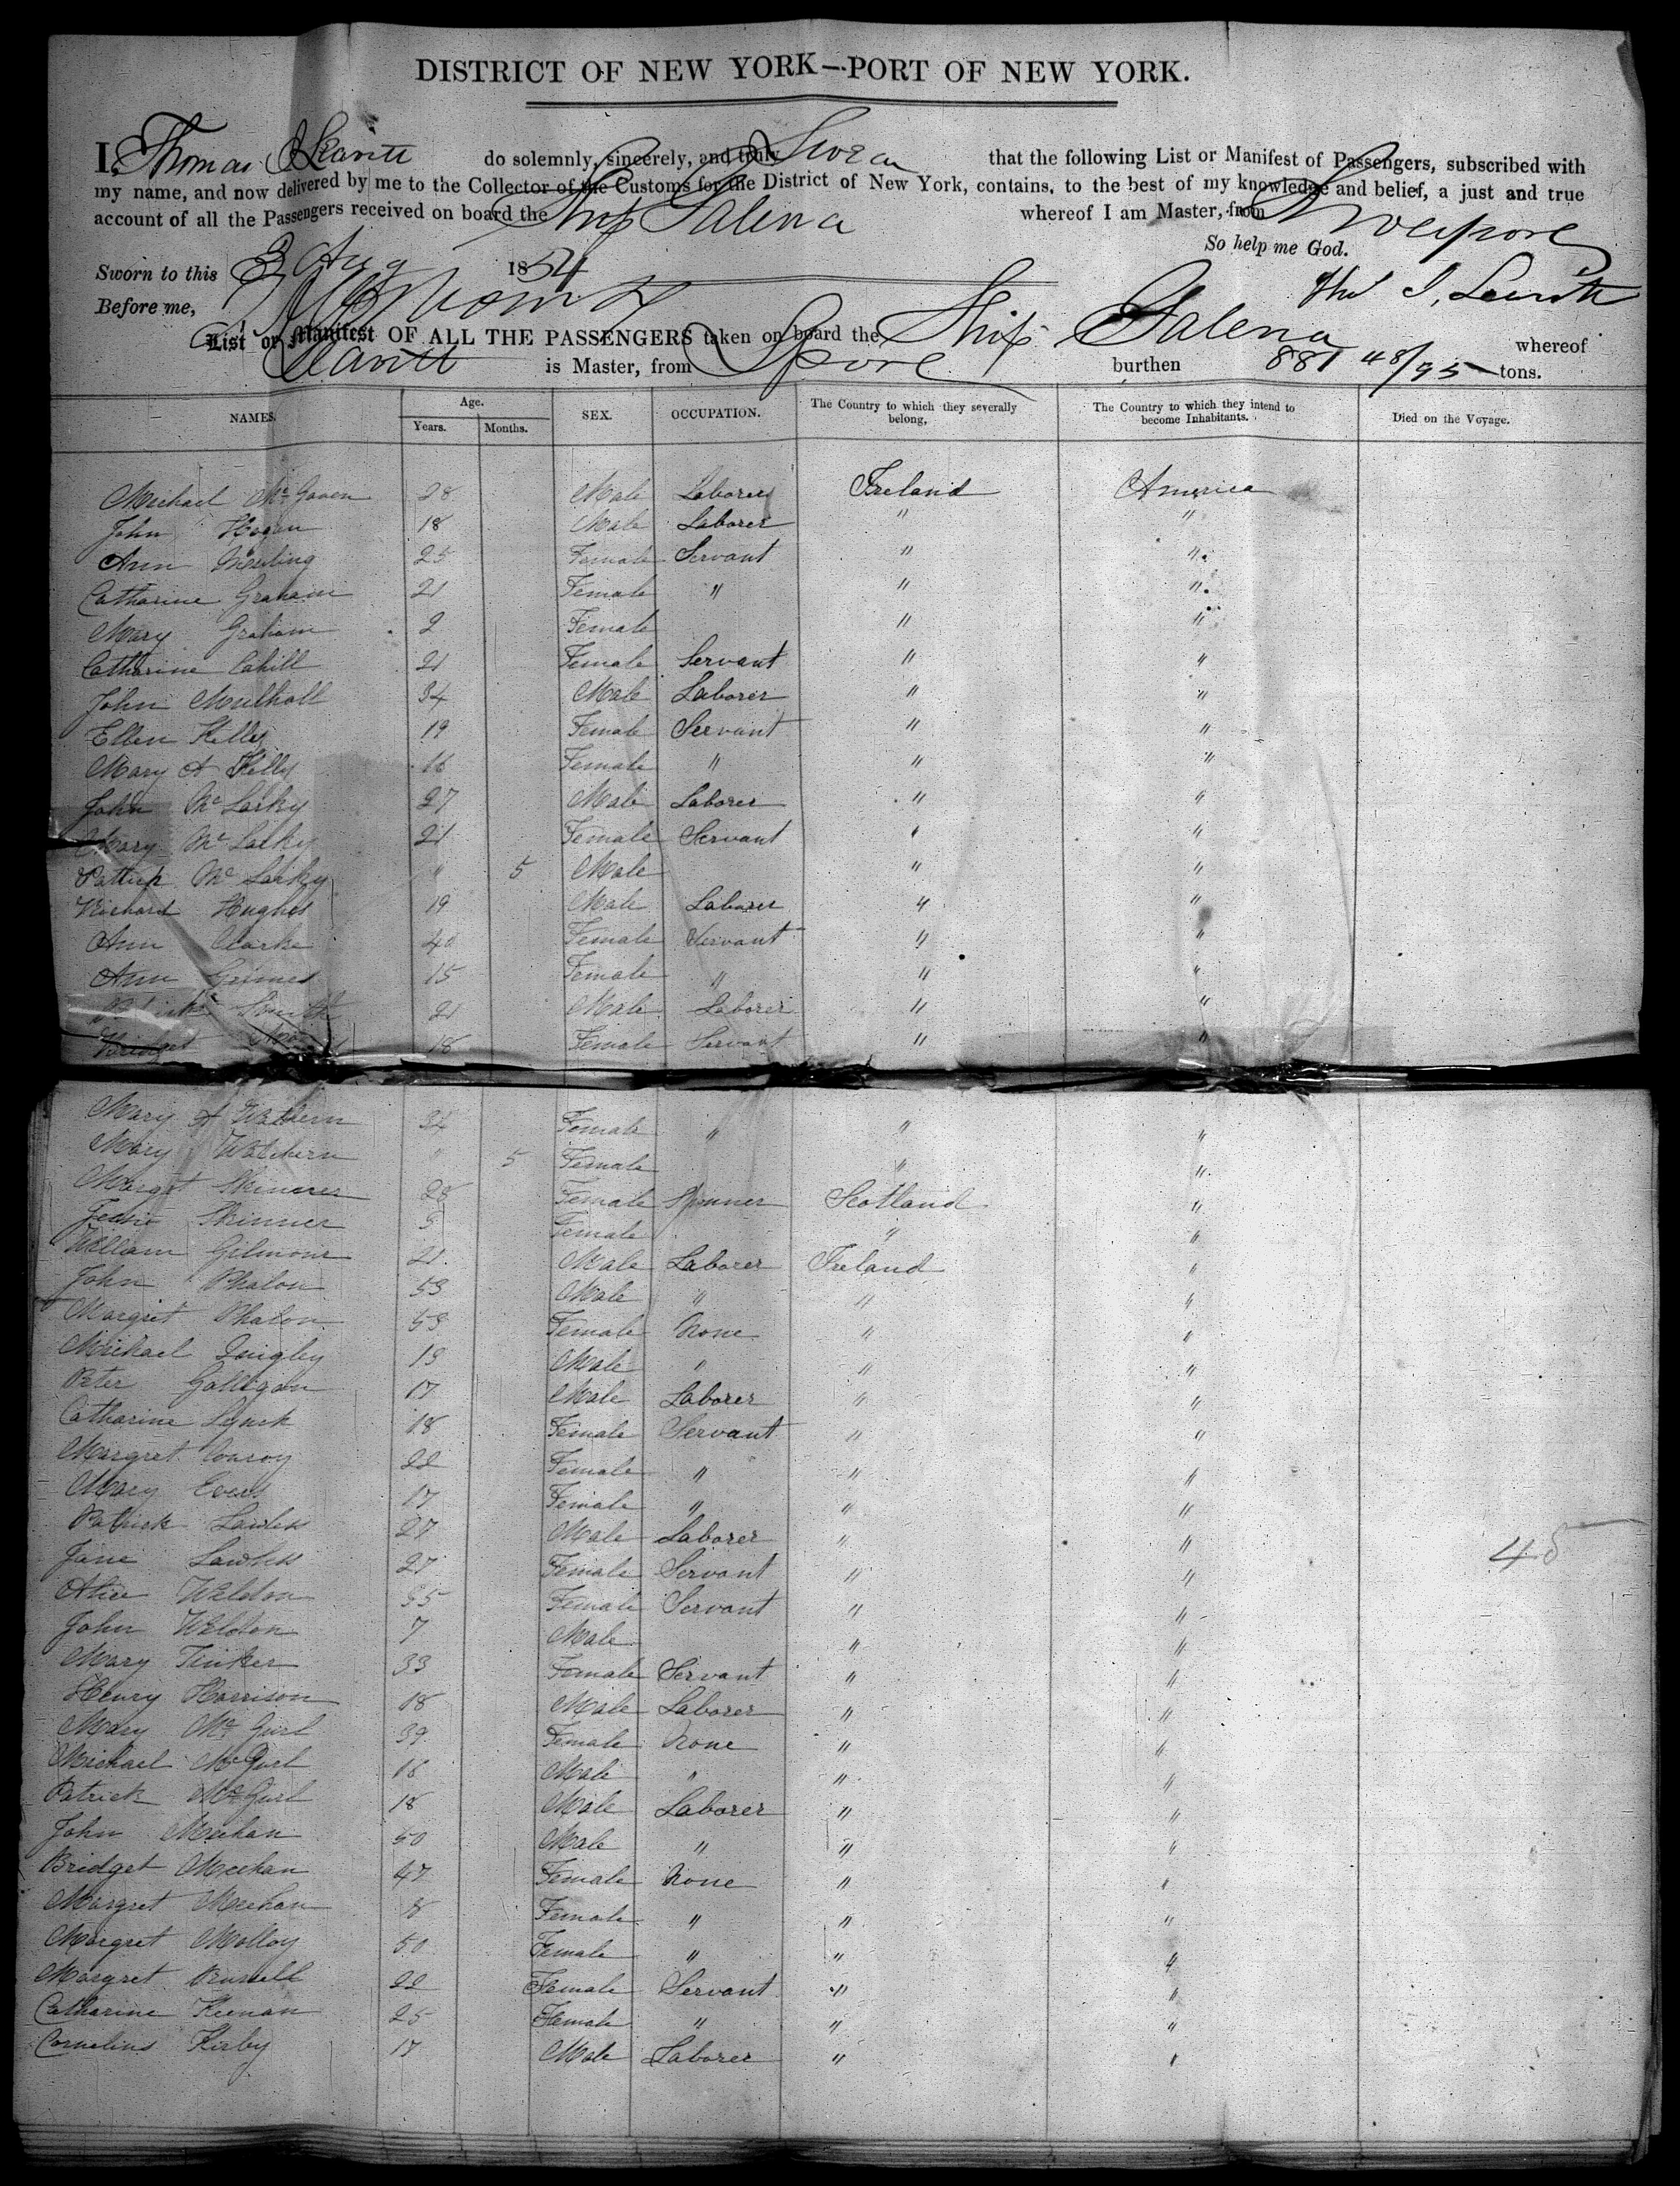 DISTRICT OF NEW YORK—PORT OF NEW YORK.
I, Thomas Leavitt do solemnly, sincerely, and truly Swear that the following List or Manifest of Passengers, subscribed with
my name, and now delivered by me to the Collector of the Customs for the District of New York, contains, to the best of my knowledge and belief, a just and true
account of all the Passengers received on board the Ship Galena whereof I am Master, from Liverpool
So help me God.
Sworn to this 3 Aug 1854
Before me, Thos J. Leavitt
List or Manifest OF ALL THE PASSENGERS taken on board the Ship Galena whereof
Leavitt is Master, from Lpool burthen 881 48/95 tons.
NAMES. Age. Years. Months. SEX. OCCUPATION. The Country to which they severally belong, The Country to which they intend to become Inhabitants. Died on the Voyage.
Michael Mc Gaven 28 Male Laborer Ireland America
John Hogan 18 Male Laborer " "
Ann 25 Female Servant " "
Catharine Graham 21 Female " " "
Mary Graham 2 Female " "
Catharine Cahill 21 Female Servant " "
John Mulhall 34 Male Laborer " "
Ellen Kelly 19 Female Servant " "
Mary A Kelly 16 Female " " "
John Mc Larky 27 Male Laborer " "
Mary Mc Larky 21 Female Servant " "
Patrick Mc Larky " 5 Male " "
Richard Hughes 19 Male Laborer " "
Ann Clarke 40 Female Servant " "
Ann Grimes 15 Female " " "
Smith 21 Male Laborer " "
Bridget 18 Female Servant " "
Mary A Wathern 34 Female " " "
Mary Wathern " 5 Female " "
Margret Skinner 28 Female Spinner Scotland "
Skinner 5 Female " "
William Gilmour 21 Male Laborer Ireland "
John Phalon 53 Male " " "
Margret Phalon 53 Female None " "
Michael Quigley 13 Male " " "
Peter Galligan 17 Male Laborer " "
Catharine Lynch 18 Female Servant " "
Margret Conroy 22 Female " " "
Mary Evers 17 Female " " "
Patrick Lawless 27 Male Laborer " "
Jane Lawless 27 Female Servant " " 45
Alice Weldon 35 Female Servant " "
John Weldon 7 Male " "
Mary Tinker 33 Female Servant " "
Henry Harrison 18 Male Laborer " "
Mary Mc Girl 39 Female None " "
Michael Mc Girl 16 Male " " "
Patrick Mc Girl 18 Male Laborer " "
John Meehan 50 Male " " "
Bridget Meehan 47 Female None " "
Margret Meehan 8 Female " " "
Margret Molloy 50 Female " " "
Margret Russell 22 Female Servant " "
Catharine Keenan 25 Female " " "
Cornelius Kirby 17 Male Laborer " "